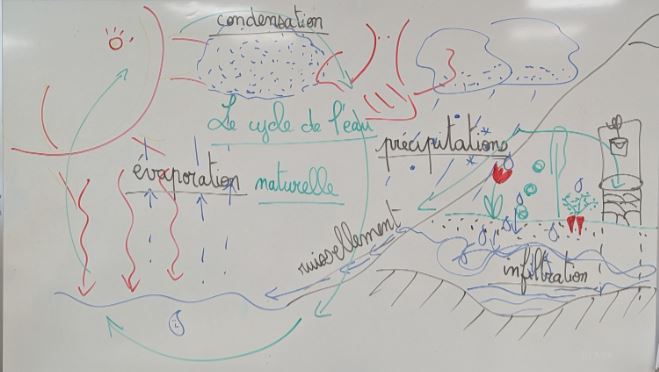 condensation
Le cycle de l'eau
naturelle
précipitations
évaporation
ruissellement
infiltration